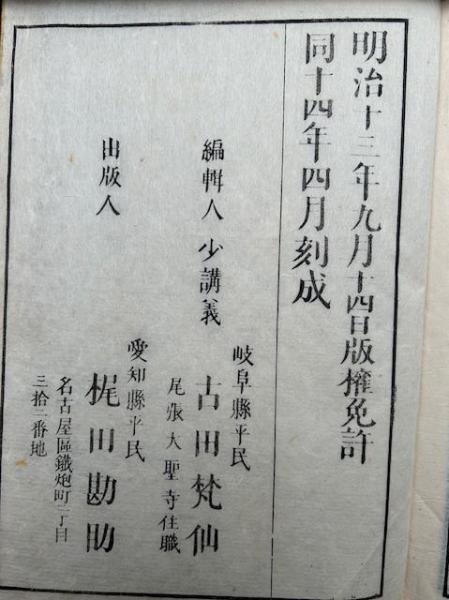 明治十三年九月十四日版權免許
同十四年四月刻成
岐阜縣平民
編輯人 少講義 古田梵仙
尾張大聖寺住職
愛知縣平民
出版人 梶田勘助
名古屋區鐵炮町二丁目
三拾二番地